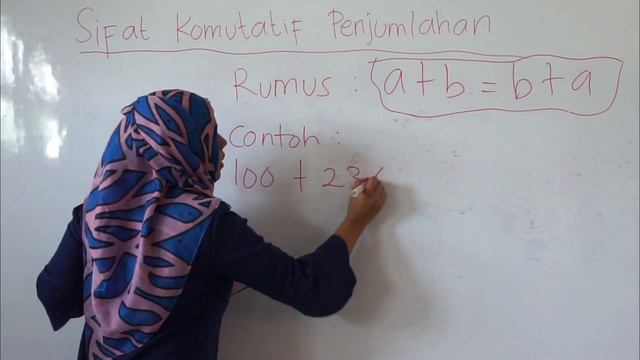 Sifat Komutatif Penjumlahan
Rumus : a + b = b + a
Contoh :
100 + 23